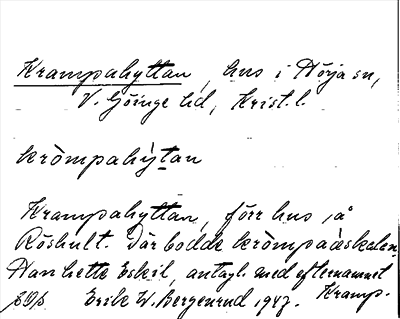 Krampahyttan, hus i Hörja sn,
V. Göinge hd, Krist. l.
kròmpahỳtan
Krampahyttan, förr hus på
Röshult. Där bodde kròmpaäskalen.
Han hette Eskil, antagl. med efternamnet
Kramp.
Erik W. Bergenrud 1947.